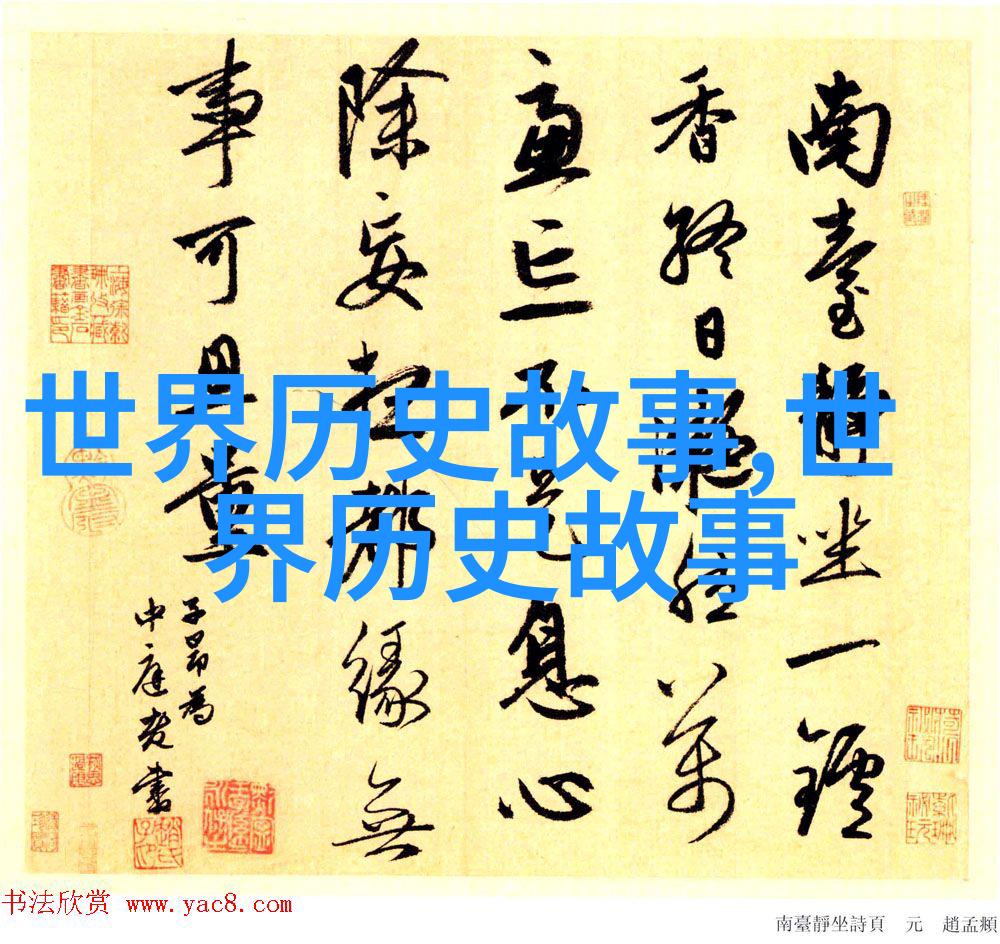 南臺靜坐一鑪
香終日凝萬
慮亡不是息心
除妄想都緣無
事可思量
子昂為
中庭老書
世界历史故事,世
界历史故事
书法欣赏 www.yac8.com
南臺靜坐詩頁 元 趙孟頫